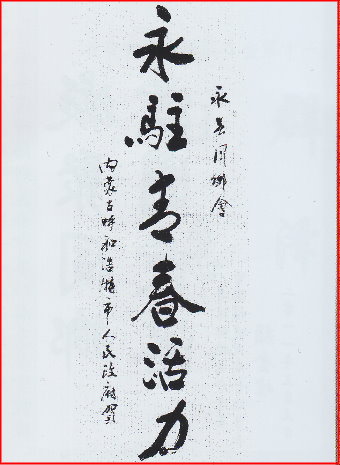 永春同鄉會
永駐青春活力
內蒙古呼和浩特市人民政府賀